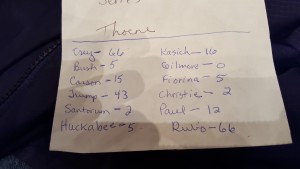 Series
Thoene
Cruz - 66 Kasich - 16
Bush - 5 Gilmore - 0
Carson - 15 Fiorina - 5
Trump - 43 Christie - 2
Santorum - 2 Paul - 12
Huckabee - 5 Rubio - 66